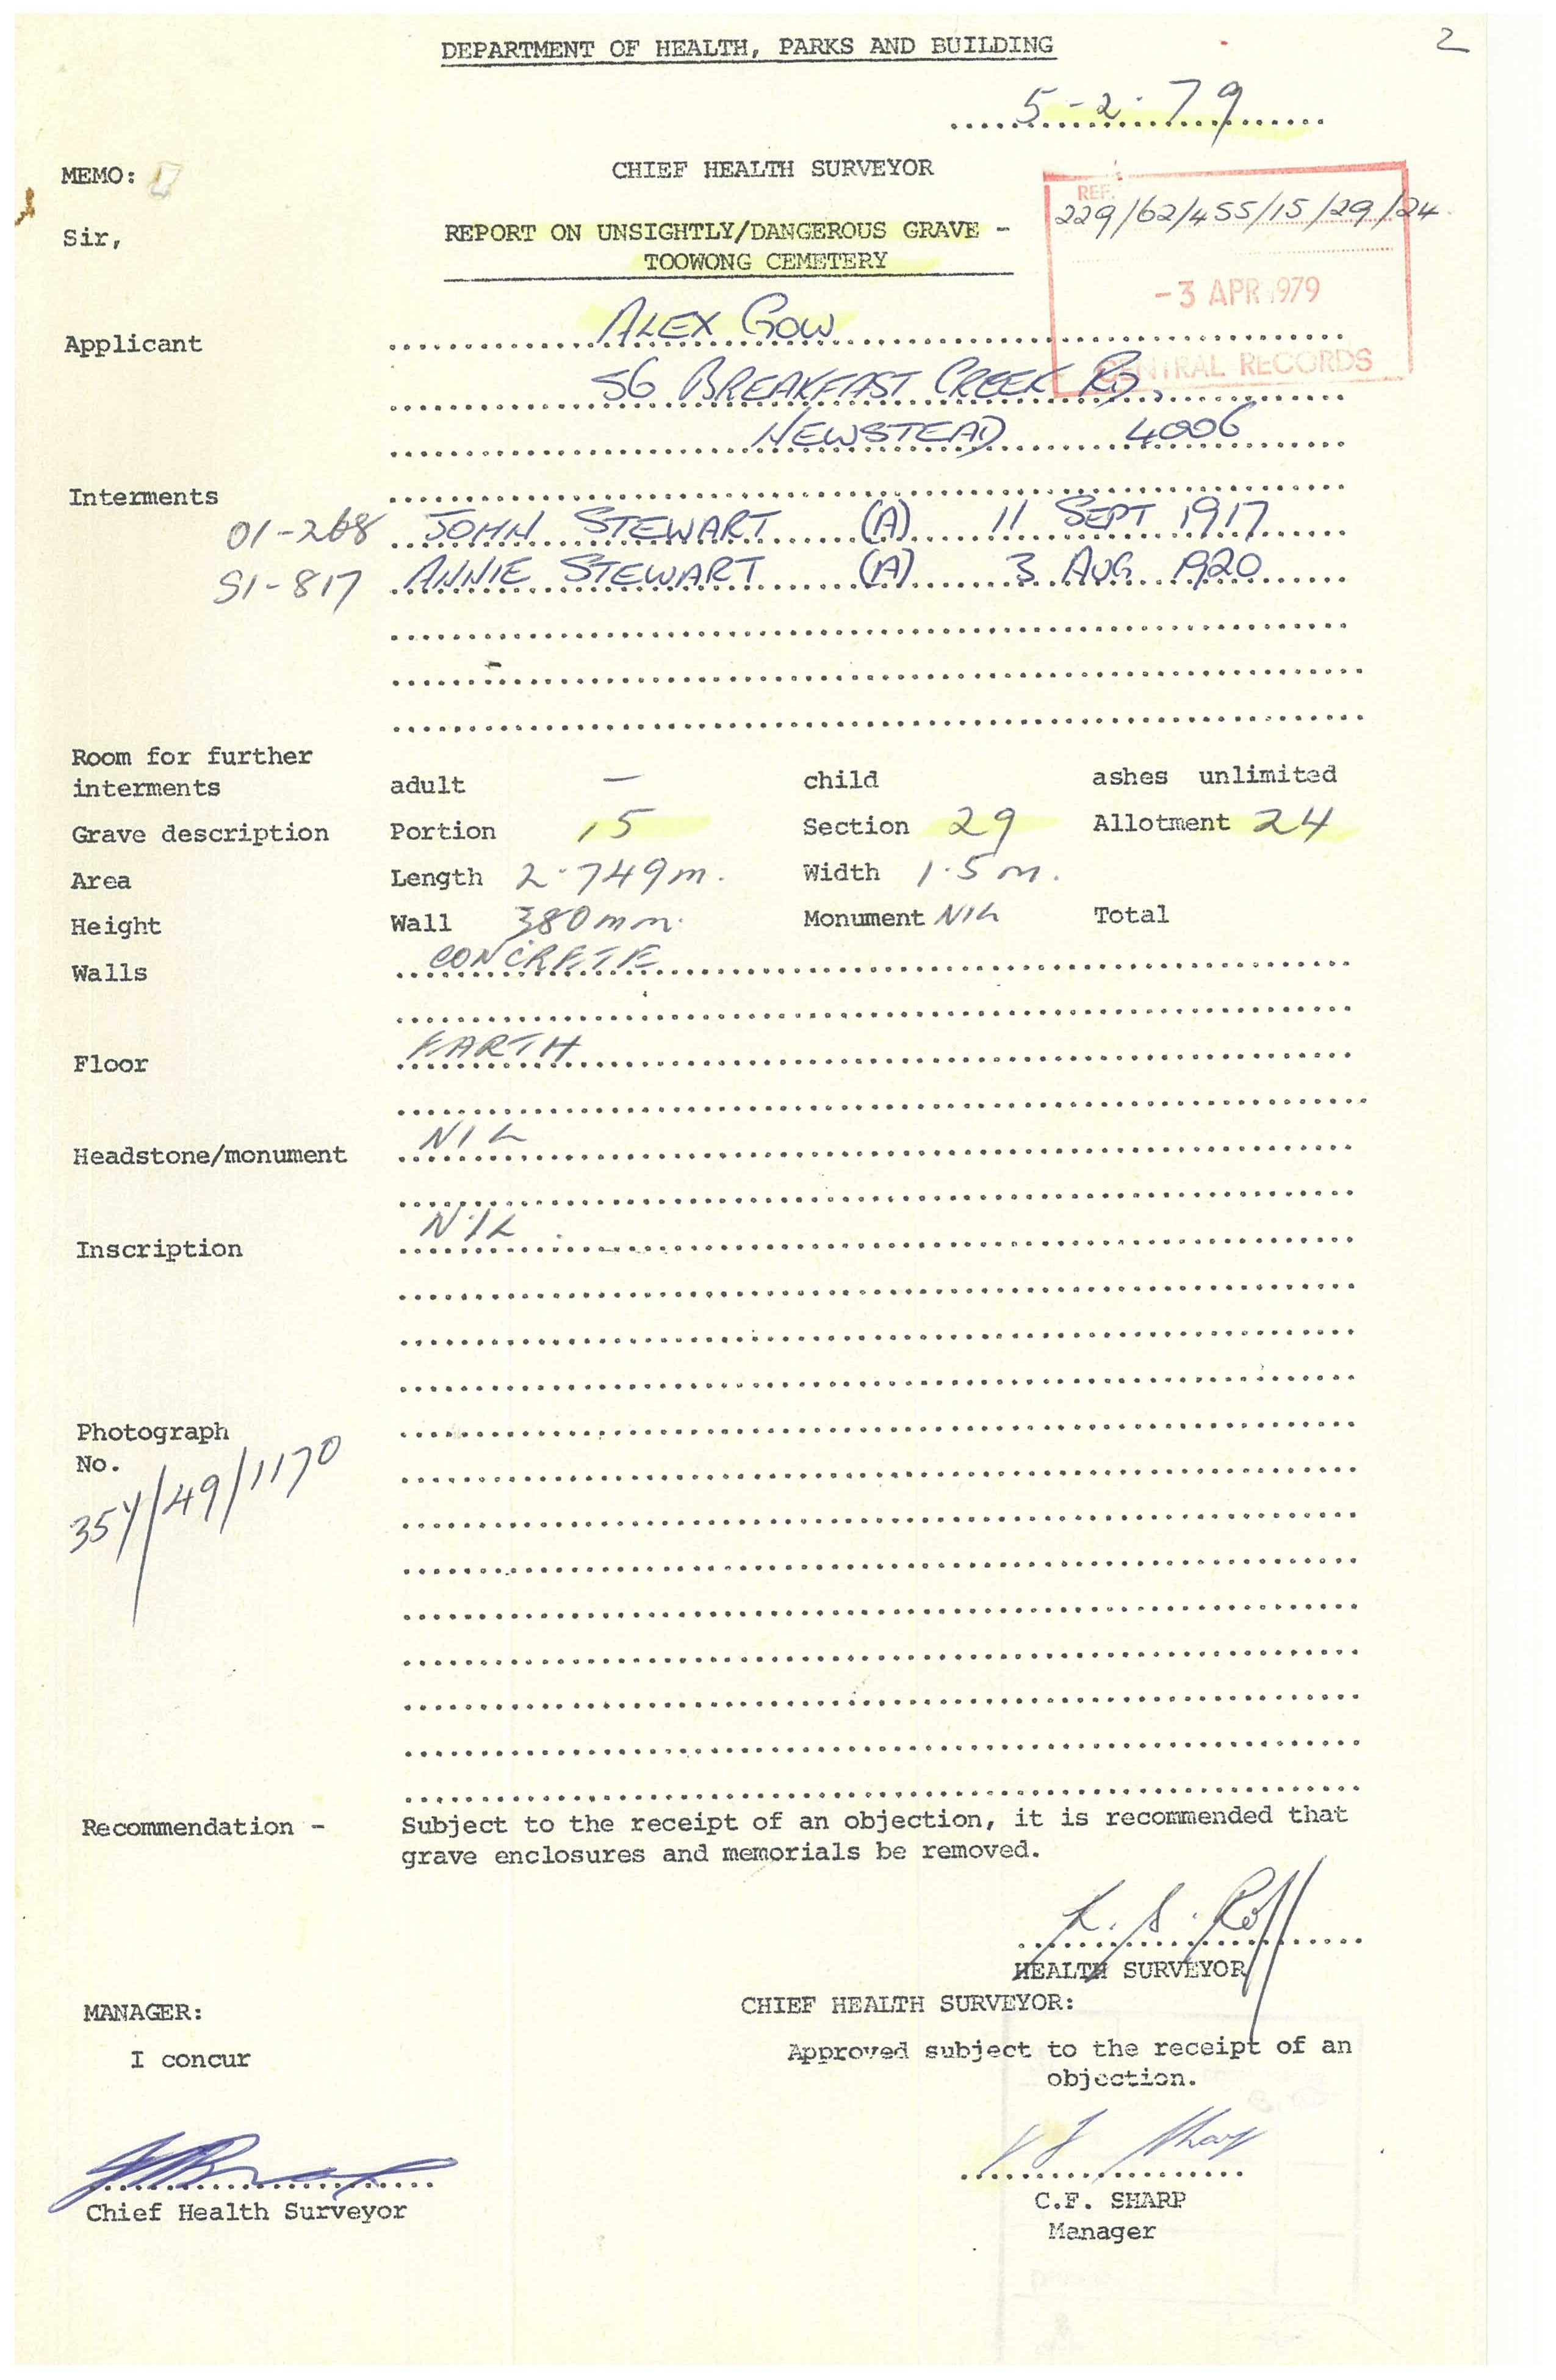 2
DEPARTMENT OF HEALTH, PARKS AND BUILDING
5-2-79
MEMO: CHIEF HEALTH SURVEYOR
REF.
229/62/455/15/29/24
Sir, REPORT ON UNSIGHTLY/DANGEROUS GRAVE -
TOOWONG CEMETERY
-3 APR 1979
CENTRAL RECORDS
Applicant ALEX GOW
56 BREAKFAST CREEK RD,
NEWSTEAD 4006
Interments
01-268 JOHN STEWART (A) 11 SEPT 1917
S1-817 ANNIE STEWART (A) 3 AUG 1920
Room for further
interments adult — child ashes unlimited
Grave description Portion 15 Section 29 Allotment 24
Area Length 2.749m. Width 1.5m.
Height Wall 380mm. Monument NIL Total
Walls CONCRETE
Floor EARTH
Headstone/monument NIL
Inscription NIL
Photograph
No.
354/49/1170
Recommendation - Subject to the receipt of an objection, it is recommended that
grave enclosures and memorials be removed.
K. S. Roff
HEALTH SURVEYOR
MANAGER: CHIEF HEALTH SURVEYOR:
I concur Approved subject to the receipt of an
objection.
Chief Health Surveyor
C.F. SHARP
Manager